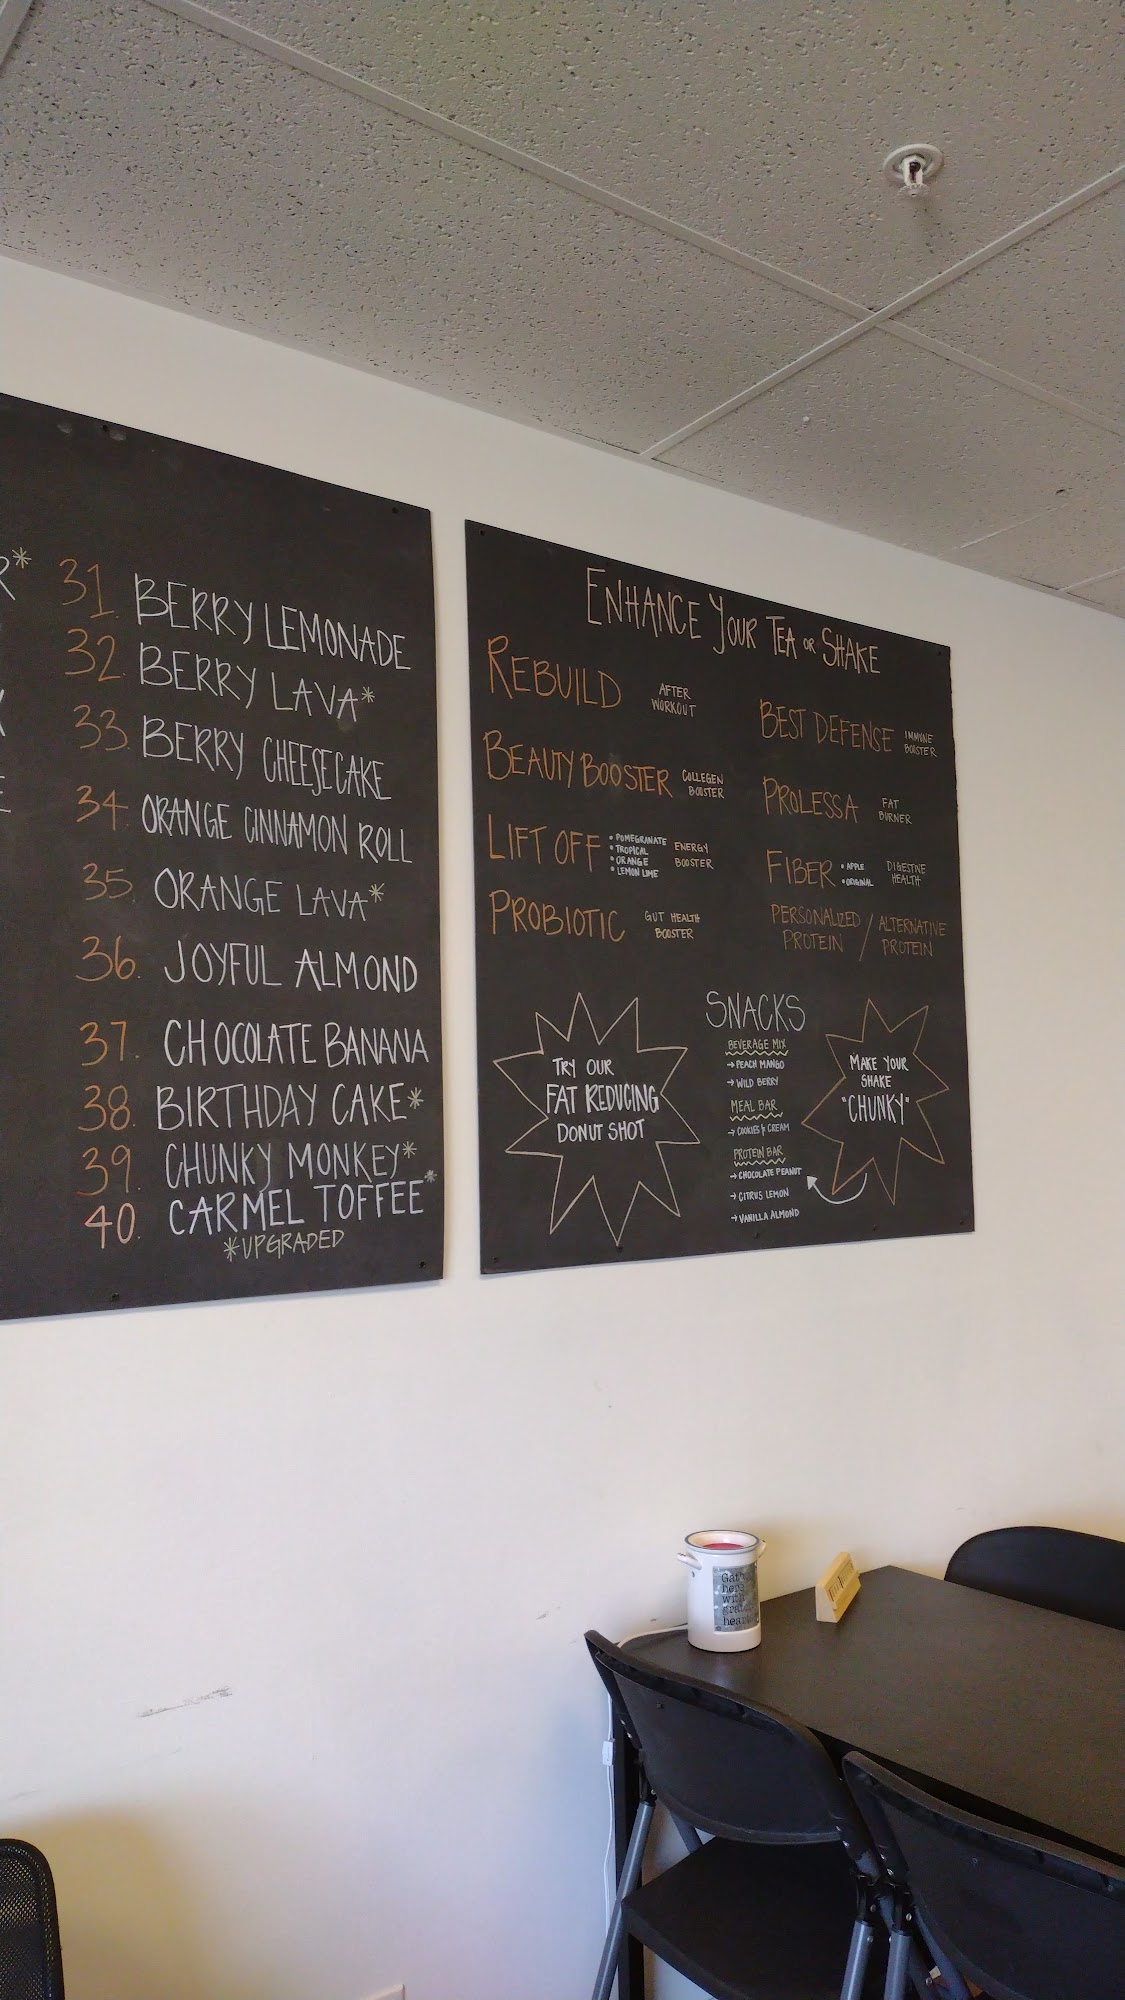 31. BERRY LEMONADE
32. BERRY LAVA*
33. BERRY CHEESECAKE
34. ORANGE CINNAMON ROLL
35. ORANGE LAVA*
36. JOYFUL ALMOND
37. CHOCOLATE BANANA
38. BIRTHDAY CAKE*
39. CHUNKY MONKEY*
40. CARMEL TOFFEE*
*UPGRADED
ENHANCE YOUR TEA OR SHAKE
REBUILD
AFTER
WORKOUT
BEAUTY BOOSTER
COLLEGEN
BOOSTER
LIFT OFF
• POMEGRANATE
• TROPICAL
• ORANGE
• LEMON LIME
ENERGY
BOOSTER
PROBIOTIC
GUT HEALTH
BOOSTER
BEST DEFENSE
IMMUNE
BOOSTER
PROLESSA
FAT
BURNER
FIBER
• APPLE
• ORIGINAL
DIGESTIVE
HEALTH
PERSONALIZED
PROTEIN /
ALTERNATIVE
PROTEIN
TRY OUR
FAT REDUCING
DONUT SHOT
SNACKS
BEVERAGE MIX
→ PEACH MANGO
→ WILD BERRY
MEAL BAR
→ COOKIES & CREAM
PROTEIN BAR
→ CHOCOLATE PEANUT
→ CITRUS LEMON
→ VANILLA ALMOND
MAKE YOUR
SHAKE
"CHUNKY"
here
with